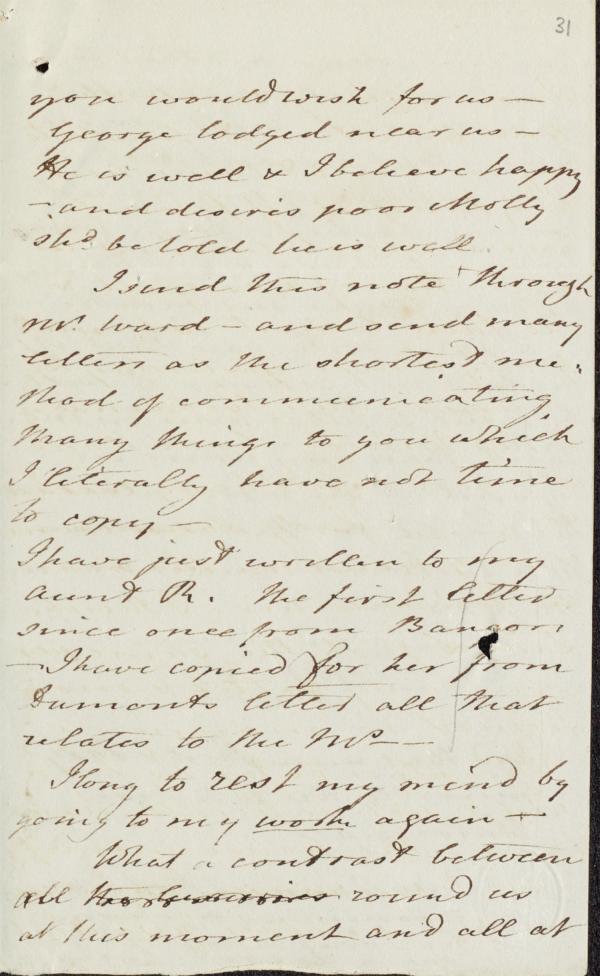 31
you would wish for us —
George lodged near us —
He is well & I believe happy
— and desires poor Molly
shd. be told he is well.
I send this note through
Mr. Ward — and send many
letters as the shortest me-
thod of communicating
many things to you which
I literally have not time
to copy —
I have just written to my
Aunt R. the first letter
since once from Bangor,
— I have copied for her from
Dumonts letter all that
relates to the MS —
I long to rest my mind by
going to my work again —
What a contrast between
all round us
at this moment and all at